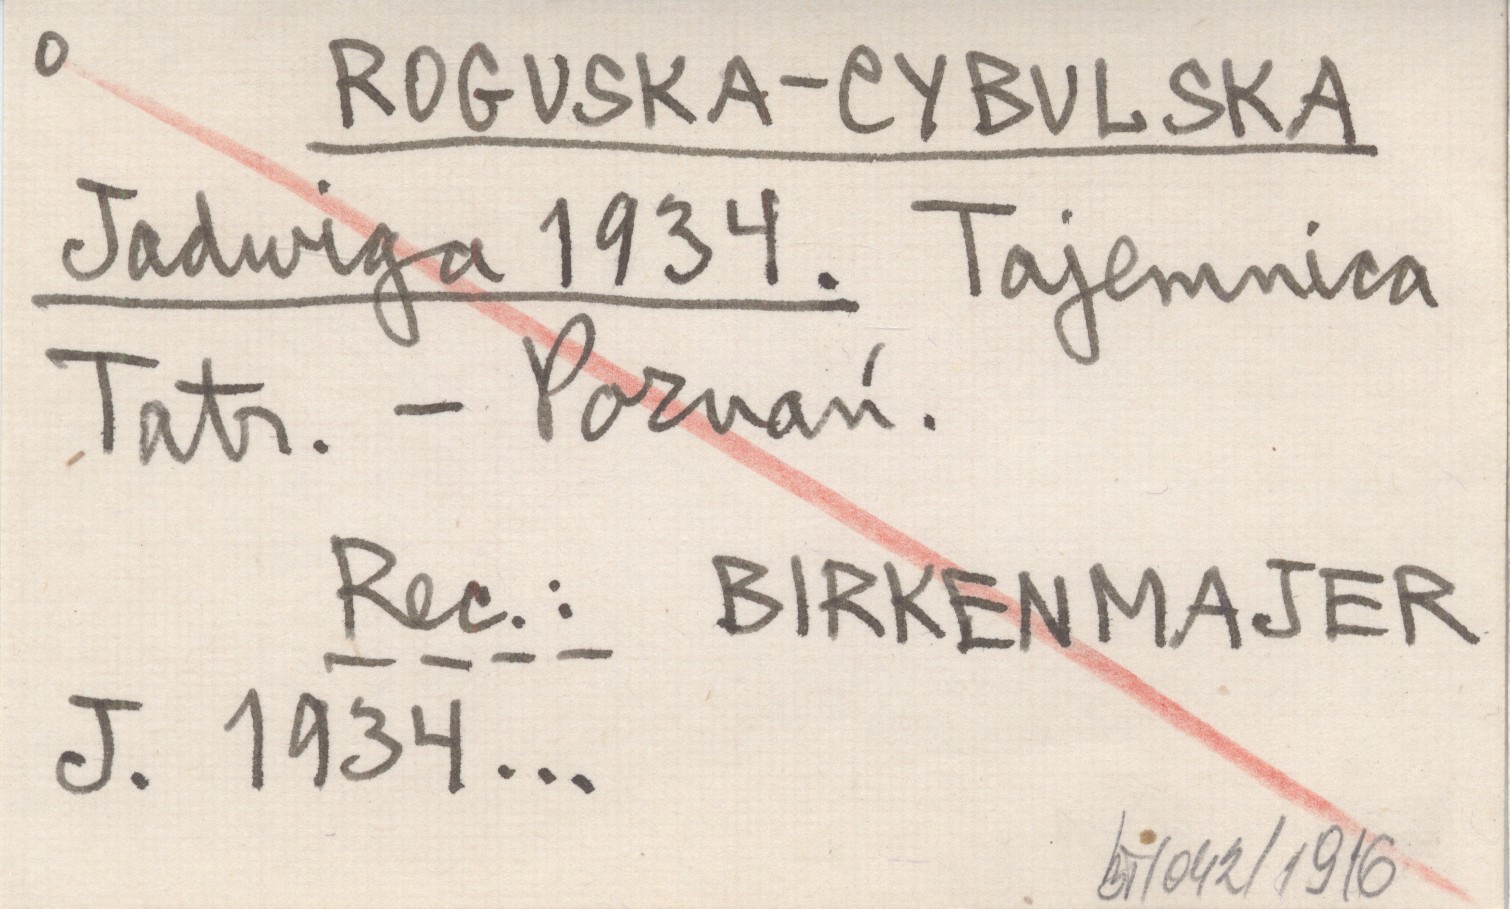 o ROGUSKA-CYBULSKA
Jadwiga 1934. Tajemnica
Tatr. - Poznań.
Rec.: BIRKENMAJER
J. 1934...
/042/1916